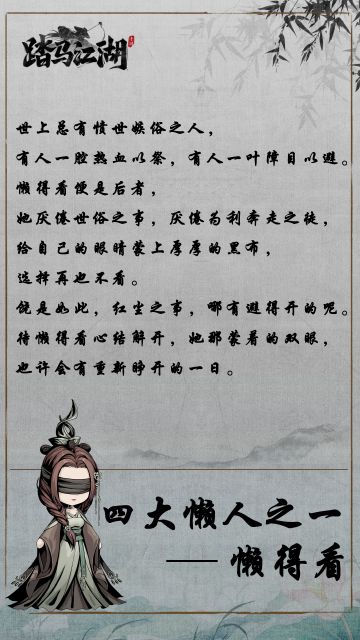 踏马江湖
世上总有愤世嫉俗之人，
有人一腔热血以祭，有人一叶障目以避。
懒得看便是后者，
她厌倦世俗之事，厌倦为利奔走之徒，
给自己的眼睛蒙上厚厚的黑布，
选择再也不看。
饶是如此，红尘之事，哪有避得开的呢。
待懒得看心结解开，她那蒙着的双眼，
也许会有重新睁开的一日。
四大懒人之一
——懒得看